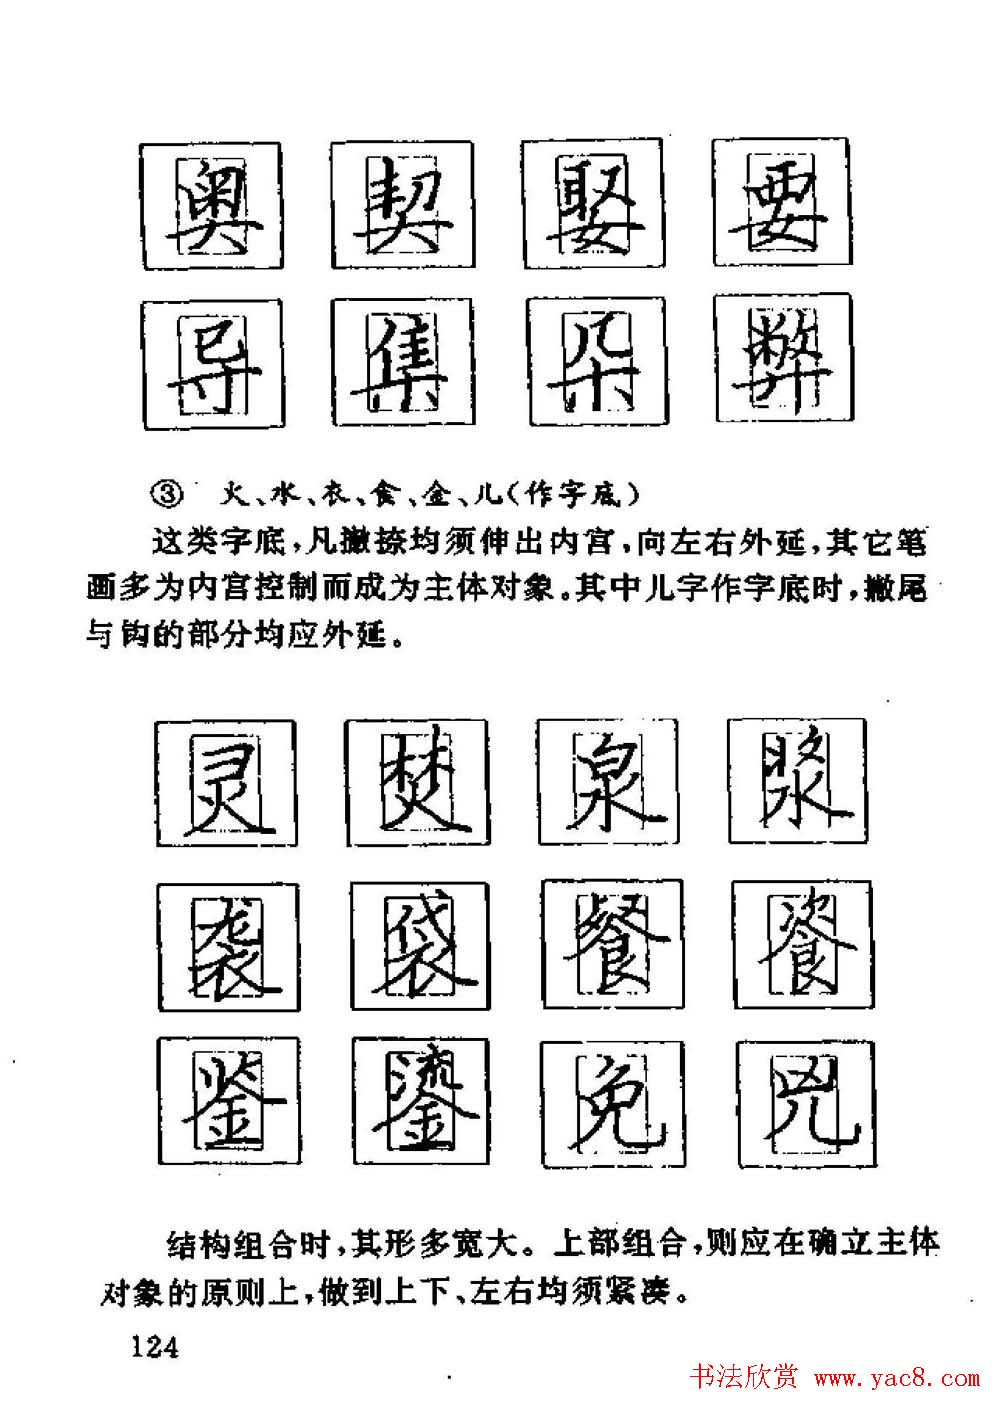 奥 契 娶 要
导 集 朵 弊
③ 火、水、衣、食、金、儿(作字底)
这类字底,凡撇捺均须伸出内宫,向左右外延,其它笔
画多为内宫控制而成为主体对象。其中儿字作字底时,撇尾
与钩的部分均应外延。
灵 焚 泉 浆
袭 袋 餐 瓷
鉴 鎏 免 兕
结构组合时,其形多宽大。上部组合,则应在确立主体
对象的原则上,做到上下、左右均须紧凑。
124
书法欣赏 www.yac8.com